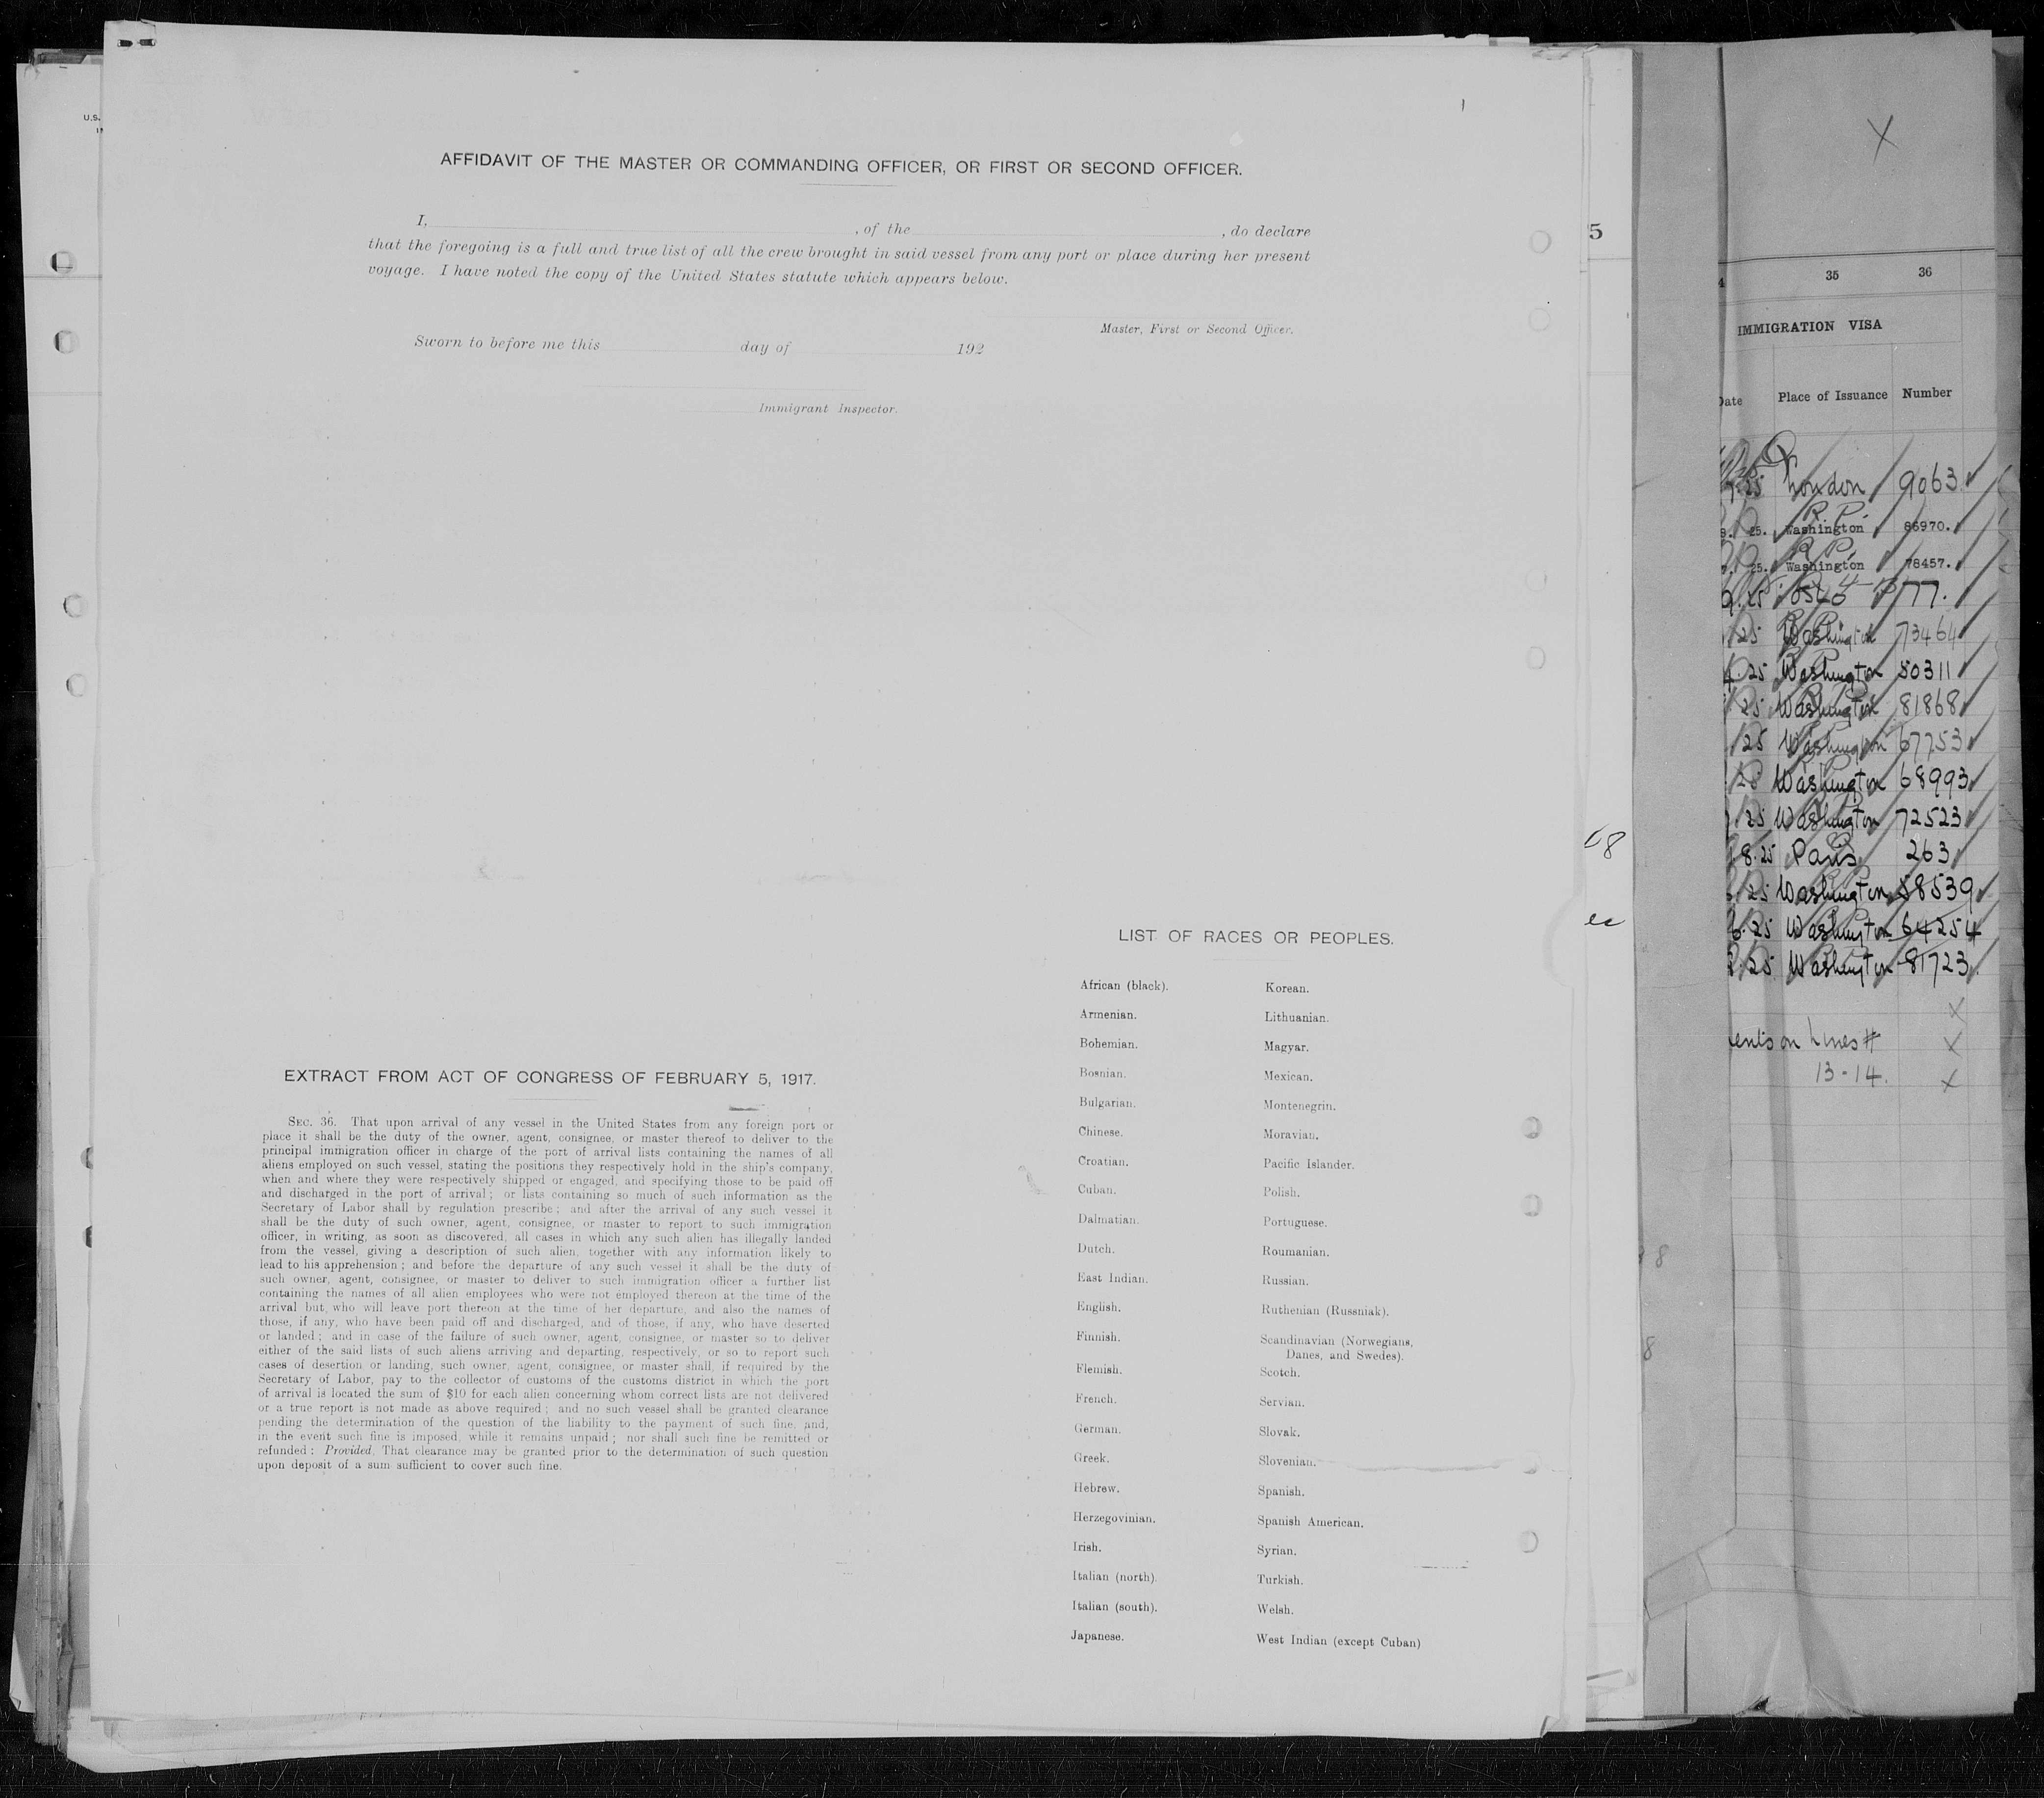 U.S.
AFFIDAVIT OF THE MASTER OR COMMANDING OFFICER, OR FIRST OR SECOND OFFICER.
I, , of the , do declare
that the foregoing is a full and true list of all the crew brought in said vessel from any port or place during her present
voyage. I have noted the copy of the United States statute which appears below.
Master, First or Second Officer.
Sworn to before me this day of 192
Immigrant Inspector.
EXTRACT FROM ACT OF CONGRESS OF FEBRUARY 5, 1917.
SEC. 36. That upon arrival of any vessel in the United States from any foreign port or
place it shall be the duty of the owner, agent, consignee, or master thereof to deliver to the
principal immigration officer in charge of the port of arrival lists containing the names of all
aliens employed on such vessel, stating the positions they respectively hold in the ship's company,
when and where they were respectively shipped or engaged, and specifying those to be paid off
and discharged in the port of arrival; or lists containing so much of such information as the
Secretary of Labor shall by regulation prescribe; and after the arrival of any such vessel it
shall be the duty of such owner, agent, consignee, or master to report to such immigration
officer, in writing, as soon as discovered, all cases in which any such alien has illegally landed
from the vessel, giving a description of such alien, together with any information likely to
lead to his apprehension; and before the departure of any such vessel it shall be the duty of
such owner, agent, consignee, or master to deliver to such immigration officer a further list
containing the names of all alien employees who were not employed thereon at the time of the
arrival but who will leave port thereon at the time of her departure, and also the names of
those, if any, who have been paid off and discharged, and of those, if any, who have deserted
or landed; and in case of the failure of such owner, agent, consignee, or master so to deliver
either of the said lists of such aliens arriving and departing, respectively, or so to report such
cases of desertion or landing, such owner, agent, consignee, or master shall, if required by the
Secretary of Labor, pay to the collector of customs of the customs district in which the port
of arrival is located the sum of $10 for each alien concerning whom correct lists are not delivered
or a true report is not made as above required; and no such vessel shall be granted clearance
pending the determination of the question of the liability to the payment of such fine, and,
in the event such fine is imposed, while it remains unpaid; nor shall such fine be remitted or
refunded: Provided, That clearance may be granted prior to the determination of such question
upon deposit of a sum sufficient to cover such fine.
LIST OF RACES OR PEOPLES.
African (black).
Armenian.
Bohemian.
Bosnian.
Bulgarian.
Chinese.
Croatian.
Cuban.
Dalmatian.
Dutch.
East Indian.
English.
Finnish.
Flemish.
French.
German.
Greek.
Hebrew.
Herzegovinian.
Irish.
Italian (north).
Italian (south).
Japanese.
Korean.
Lithuanian.
Magyar.
Mexican.
Montenegrin.
Moravian.
Pacific Islander.
Polish.
Portuguese.
Roumanian.
Russian.
Ruthenian (Russniak).
Scandinavian (Norwegians,
Danes, and Swedes).
Scotch.
Servian.
Slovak.
Slovenian.
Spanish.
Spanish American.
Syrian.
Turkish.
Welsh.
West Indian (except Cuban)
5
8
8
8
X
35 36
IMMIGRATION VISA
Date Place of Issuance Number
25 London 9063
R.P.
25. Washington 86970.
R.P.
25. Washington 78457.
9.25 Oslo 77.
25 Washington 73464
25 Washington 50311
25 Washington 81868
25 Washington 67753
25 Washington 68993
25 Washington 72523
8.25 Paris 263
25 Washington 58539
6.25 Washington 64254
25 Washington 81723
X
on Lines # X
13-14. X